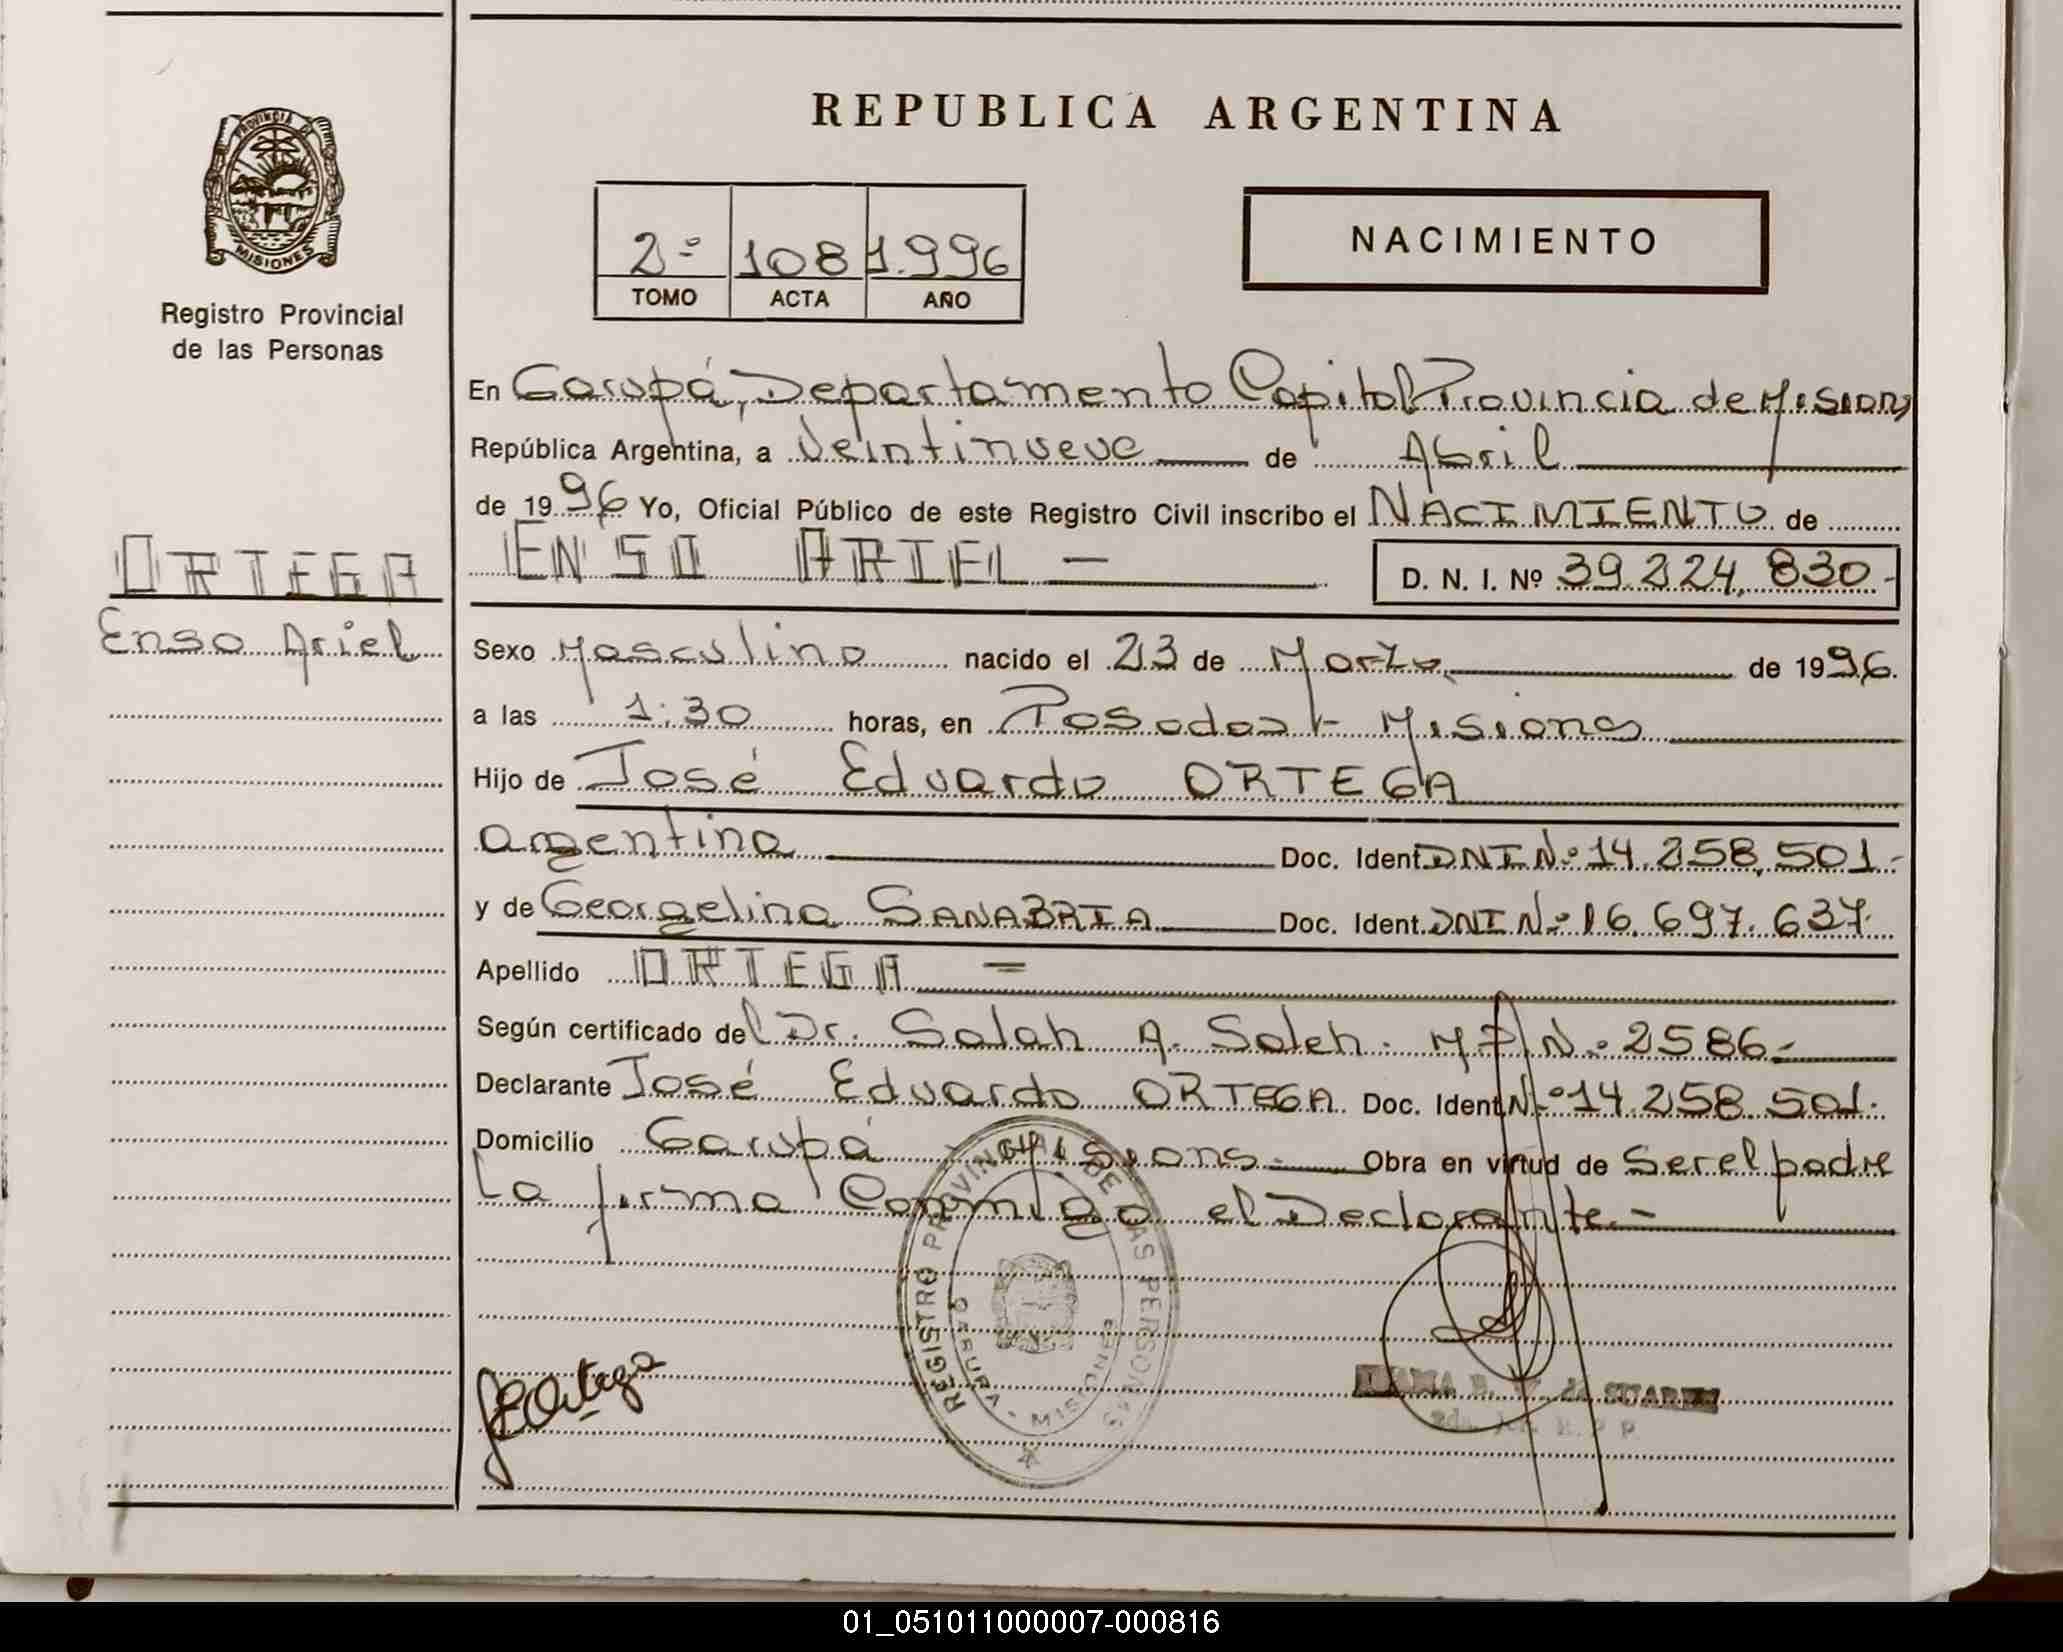 REPUBLICA ARGENTINA
PROVINCIA DE
MISIONES
Registro Provincial
de las Personas
2º 108 1.996
TOMO ACTA AÑO
NACIMIENTO
En Garupá, Departamento Capital Provincia de Misiones
República Argentina, a Veintinueve de Abril
de 1996 Yo, Oficial Público de este Registro Civil inscribo el NACIMIENTO de
ENSO ARIEL - D. N. I. Nº 39.224.830-
ORTEGA
Enso Ariel
Sexo Masculino nacido el 23 de Marzo de 1996.
a las 1:30 horas, en Posadas - Misiones
Hijo de José Eduardo ORTEGA
argentino Doc. Ident. DNI Nº 14.258.501.-
y de Georgelina SANABRIA Doc. Ident. DNI Nº 16.697.637.
Apellido ORTEGA =
Según certificado del Dr. Salah A. Saleh. MP Nº 2586.-
Declarante José Eduardo ORTEGA Doc. Ident Nº 14.258.501.
Domicilio Garupá Misions. Obra en virtud de Ser el padre
La firma Conmigo el Declarante.-
REGISTRO PROVINCIAL DE LAS PERSONAS
MISIONES
JEOrtega
de SUAREZ
01_051011000007-000816